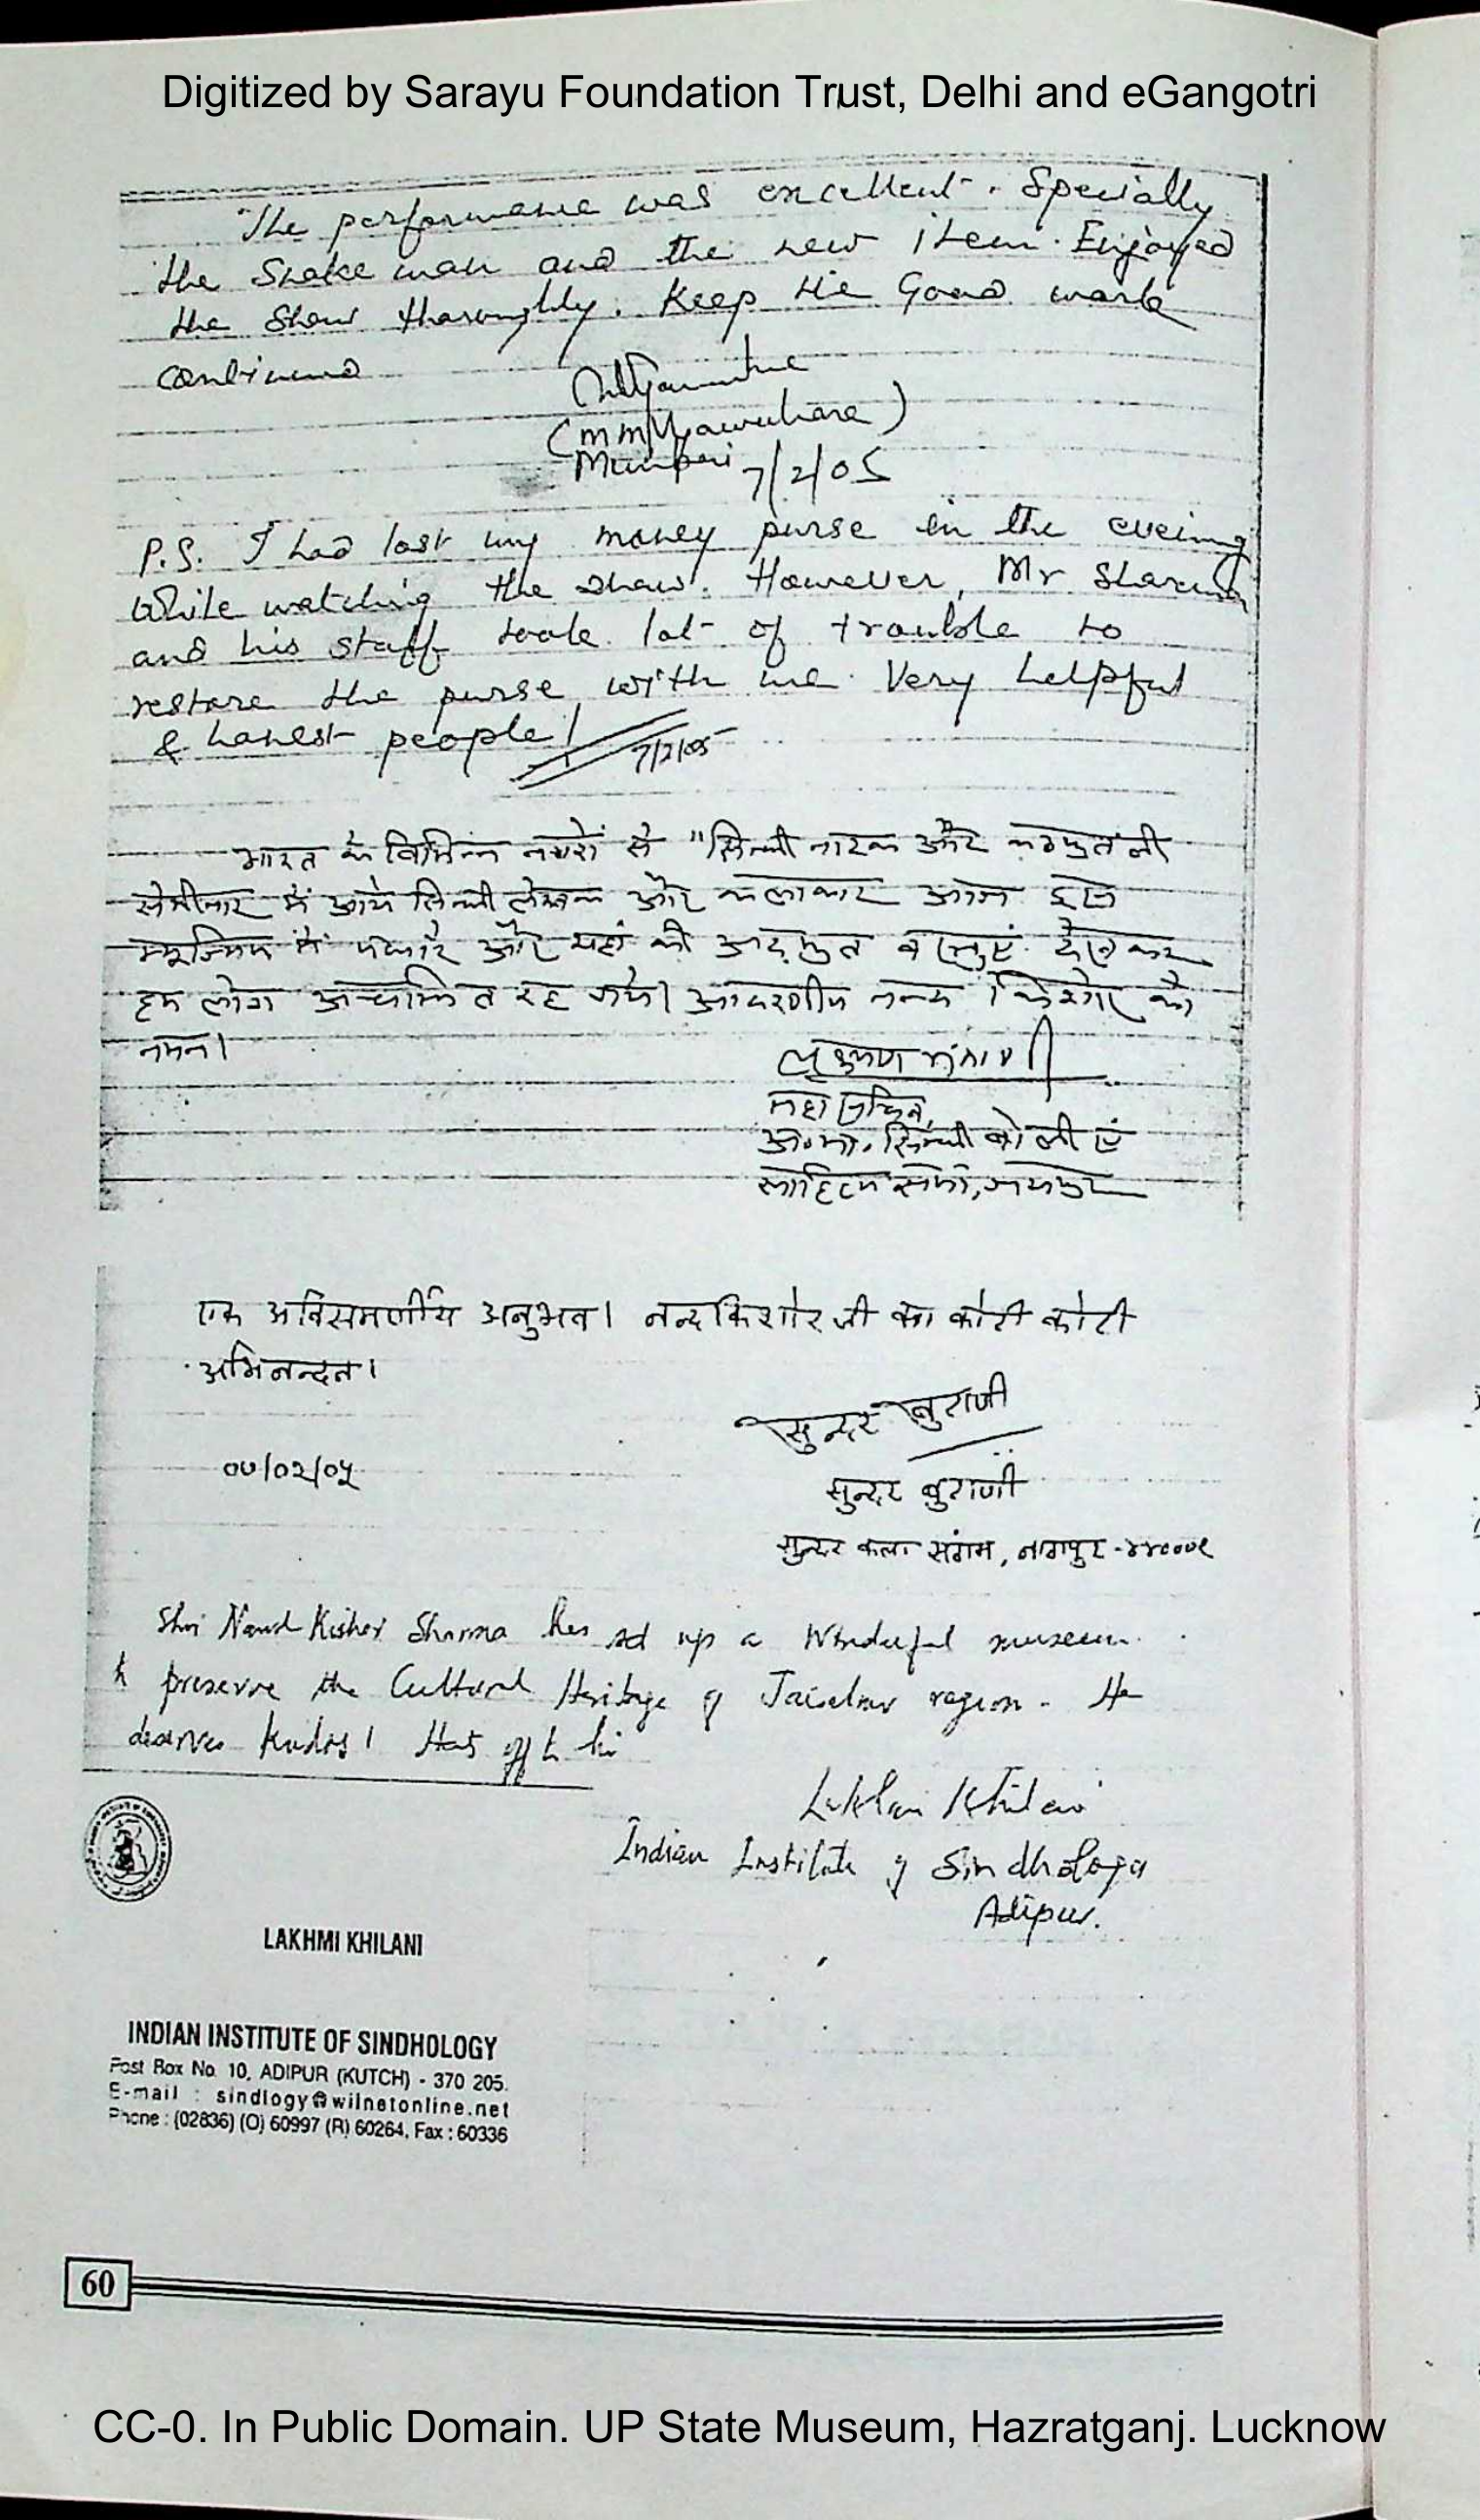 Digitized by Sarayu Foundation Trust, Delhi and eGangotri
The performance was excellent. Specially
the Snake man and the new item. Enjoyed
the Show thoroughly. Keep the Good work
continued
Mumbai 7/2/05
P.S. I had lost my money purse in the eveing
While watching the show. However, Mr Sharma
and his staff took lot of trouble to
restore the purse with me. Very helpful
& honest people!
7/2/05
भारत के विभिन्न नगरों से "सिन्धी नाटक और कठपुतली
सेमीनार में आये सिन्धी लेखक और कलाकार आज इस
म्यूजियम में पधारे और यहां की अद्भुत वस्तुएं देखकर
हम लोग अचम्भित रह गये। आदरणीय नन्द किशोर को
नमन।
लक्ष्मण
महासचिव,
अ.भा. सिन्धी बोली एं
साहित्य सभा, जयपुर
एक अविसमर्णीय अनुभव। नन्दकिशोर जी का कोटी कोटी
अभिनन्दन।
सुन्दर बुराणी
०७/०२/०५
सुन्दर बुराणी
सुन्दर कला संगम, नागपुर -
Shri Nand Kishor Sharma has set up a Wonderful museum
to preserve the Cultural Heritage of Jaisalmer region. He
deserves Kudos! Hats off to him
Lakhmi Khilani
Indian Institute of Sindhology
Adipur.
LAKHMI KHILANI
INDIAN INSTITUTE OF SINDHOLOGY
Post Box No. 10, ADIPUR (KUTCH) - 370 205.
E-mail : sindlogy@wilnetonline.net
Phone : (02836) (O) 60997 (R) 60264, Fax : 60336
60
CC-0. In Public Domain. UP State Museum, Hazratganj. Lucknow